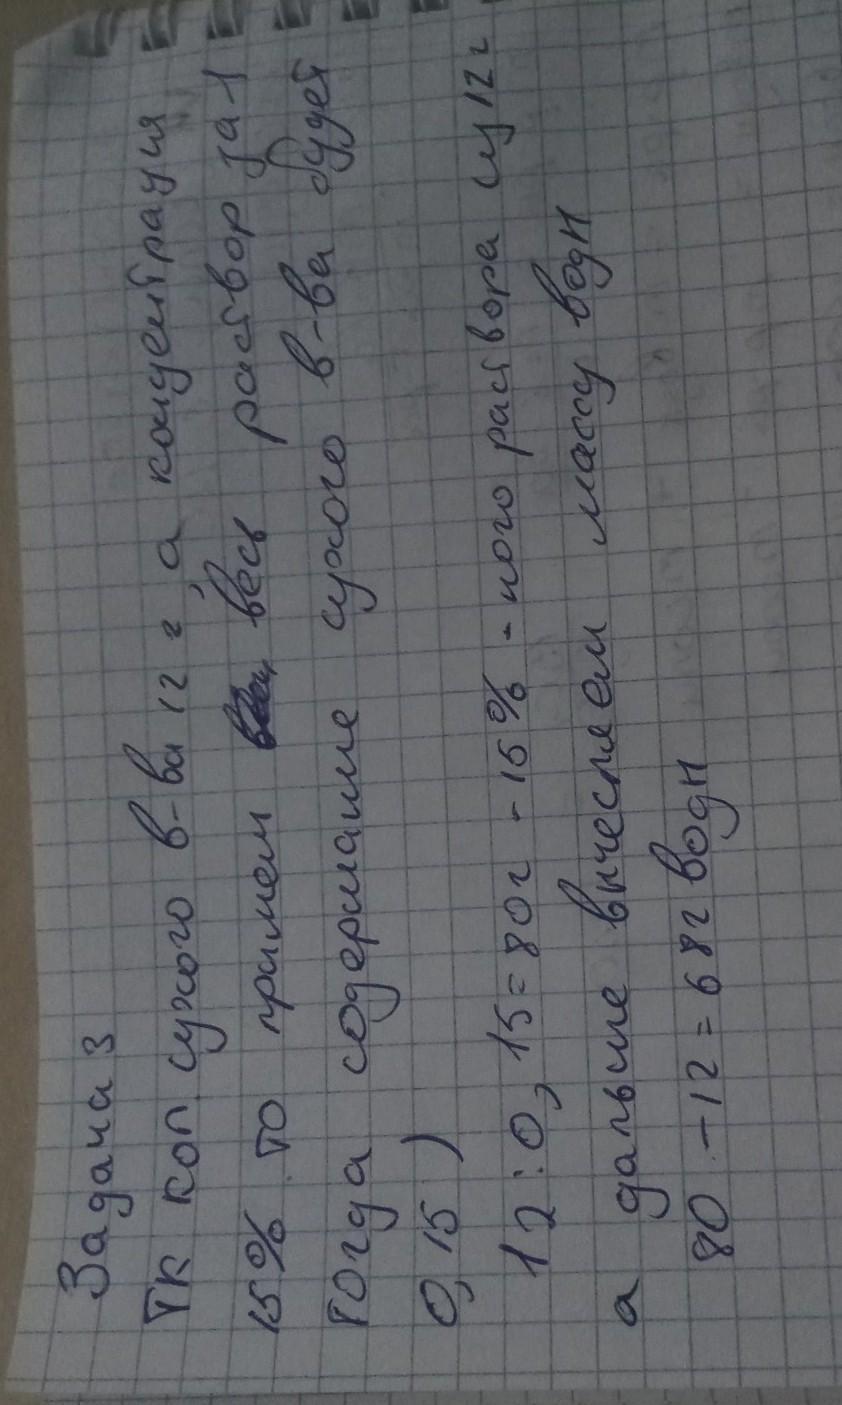 Задача 3
Тк кол. сухого в-ва 12 г, а концентрация
15% то примем весь раствор за 1
тогда содержание сухого в-ва будет
0,15)
12:0,15=80г - 15% - ного раствора из 12 г
а дальше вычесляем массу воды
80 - 12 = 68г воды